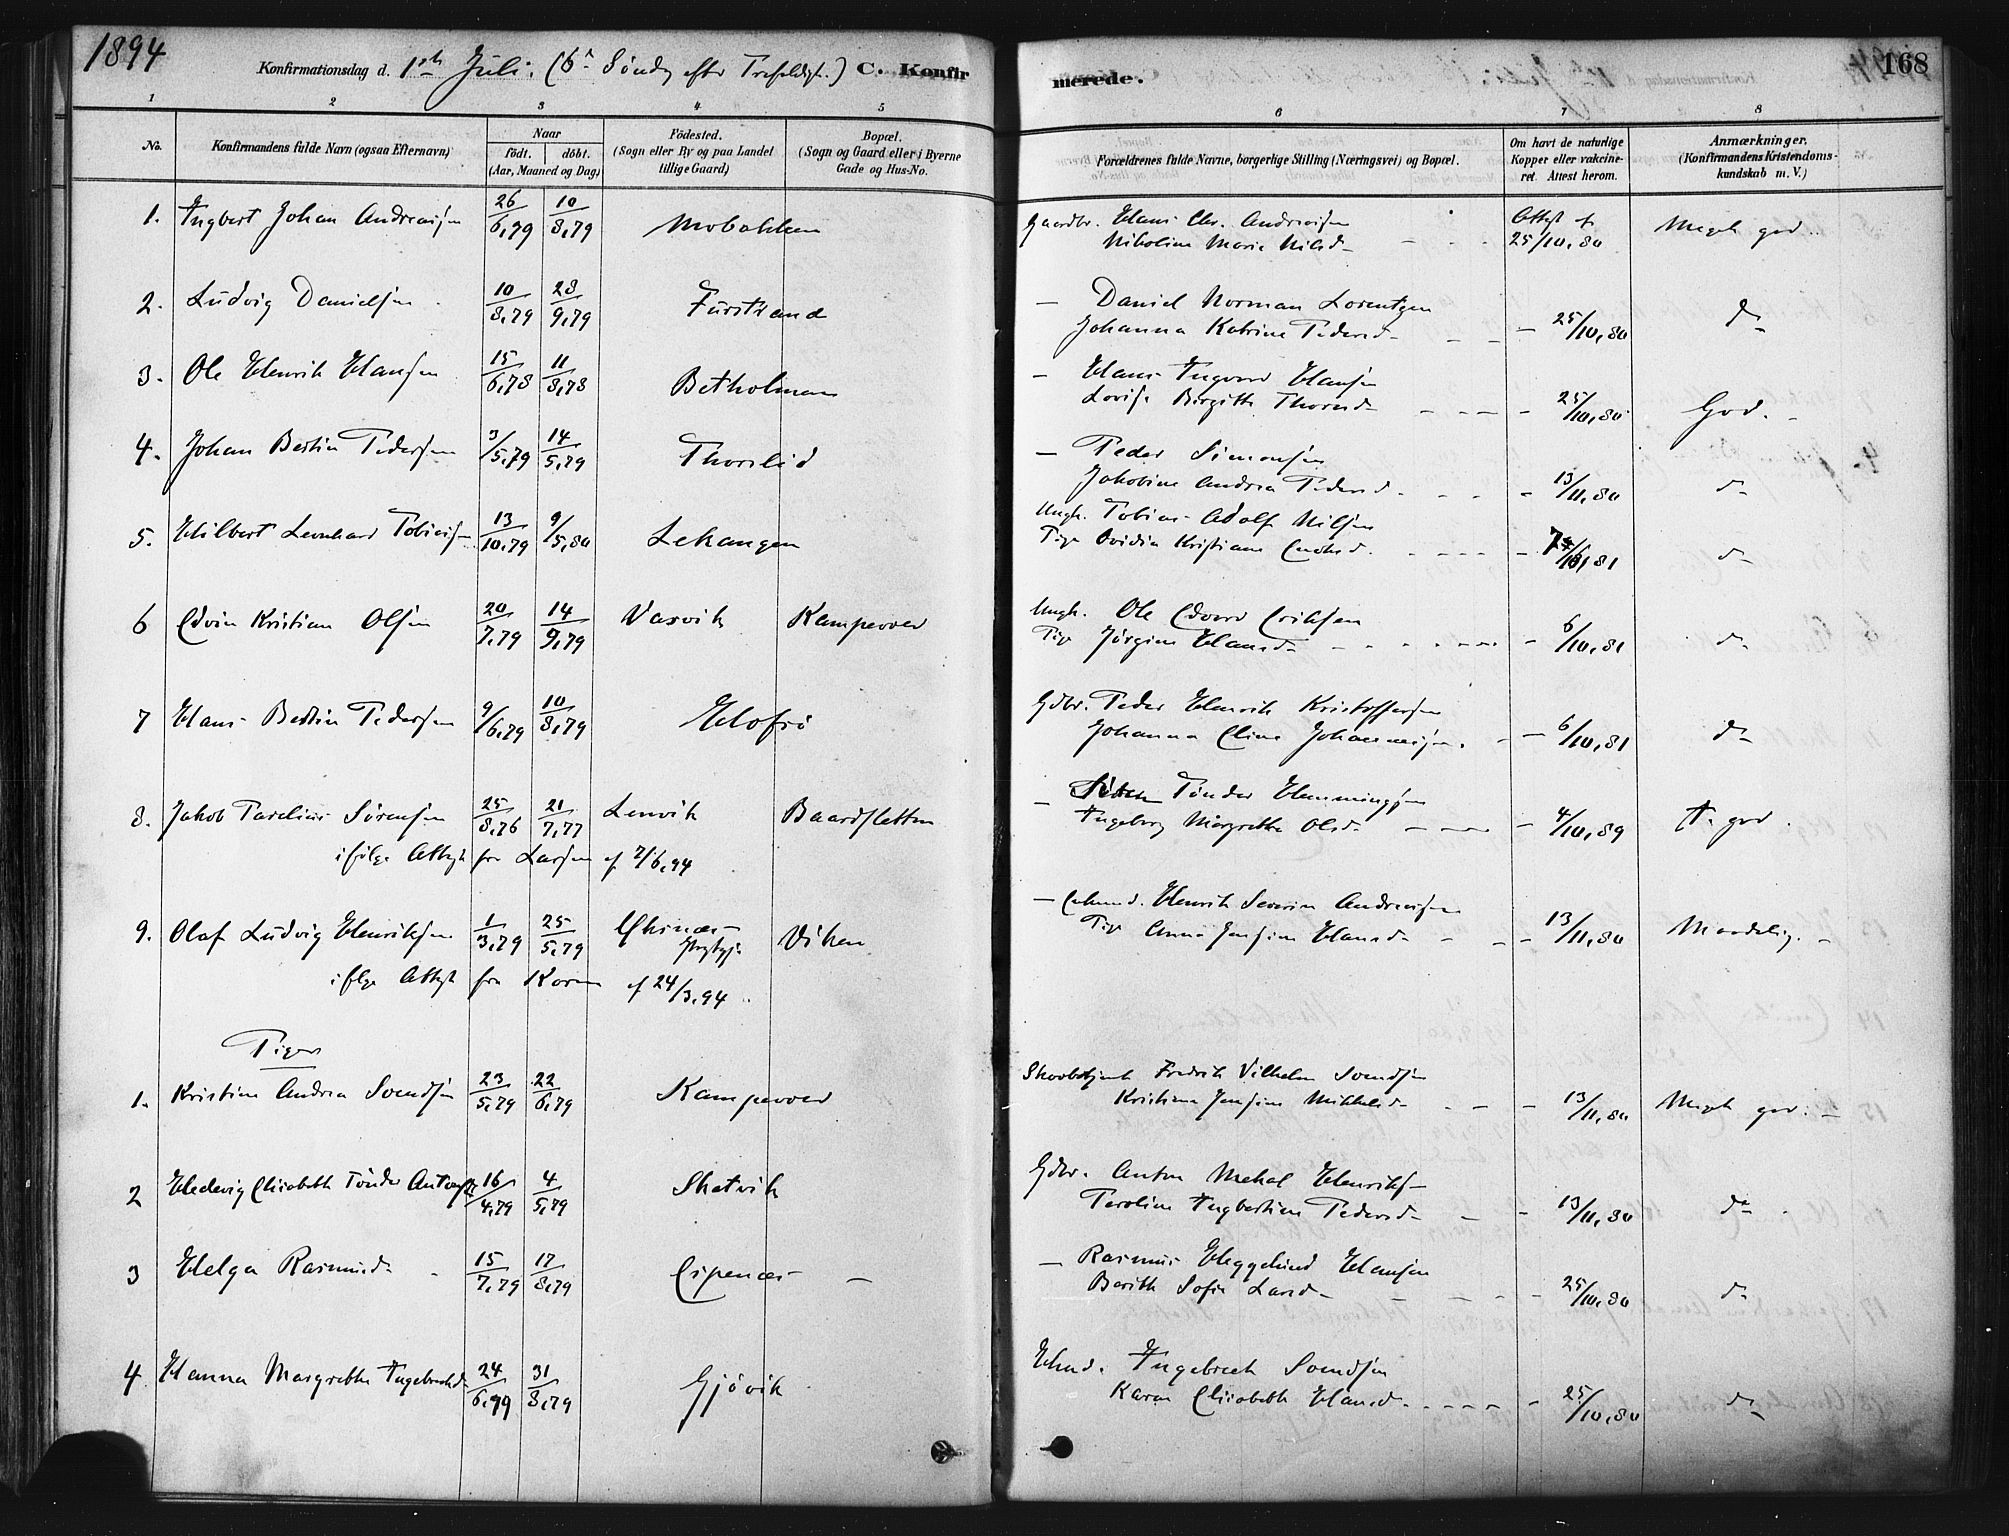 1894
Konfirmationsdag d. 1ste Juli. (6te Søndag efter Trefoldigh.) C. Konfir
merede.
168
1 2 3 4 5
6 7 8
No.
Konfirmandens fulde Navn (ogsaa Efternavn)
Naar
født. døbt.
(Aar, Maaned og Dag)
Fødested.
(Sogn eller By og paa Landet
tillige Gaard)
Bopæl.
(Sogn og Gaard eller i Byerne
Gade og Hus-No.
Forældrenes fulde Navne, borgerlige Stilling (Næringsvei) og Bopæl.
Om havt de naturlige
Kopper eller vakcine-
ret. Attest herom.
Anmærkninger.
(Konfirmandens Kristendoms-
kundskab m. V.)
1. Ingbert Johan Andreassen 26/6,79 10/8,79 Mobakken
Gaardbr. Hans Chr. Andreassen
Nikoline Marie Nilsd. Attest af 25/10,80 Meget god
2. Ludvig Danielsen 10/8,79 28/9,79 Furstrand
— Daniel Norman Lorentzen
Johanna Katrine Pedersd. — 25/10,80 do
3. Ole Henrik Hansen 15/6,78 11/8,78 Betholmen
— Hans Ingvard Hansen
Lovise Birgitte Thorsd. — 25/10,80 God.
4. Johan Bertin Pedersen 3/5,79 14/5,79 Thorslid
— Peder Simonsen
Jakobine Andrea Pedersd. — 13/11,80 do
5. Hilbert Leonhard Tobiassen 13/10,79 9/5,80 Lekangen
Ungk. Tobias Adolf Nilsen
Pige Ovidia Kristiane Enoksd. do
6 Edvin Kristian Olsen 20/7,79 14/9,79 Vasvik Kampevoll
Ungk. Ole Edvard Eriksen
Pige Jørgine Hansd. — 6/10,81 do
7 Hans Bertin Pedersen 9/6,79 10/8,79 Hofsö
Gdbr. Peder Henrik Kristoffersen
Johanna Eline Johannesen. — 6/10,81 do
8. Jakob Parelius Sørensen 25/8,76 21/7,77 Lenvik Baardsletten
ifølge Attest fra Larsen af 2/6,94
— Søren Tønder Hemmingsen
Ingeborg Margrethe Olsd. — 4/10,89 Tg. god.
9. Olaf Ludvig Henriksen 1/3,79 25/5,79 Viken
ifølge Attest fra af 24/3,94
— Enkemd. Henrik Severin Andreassen
Pige Anna Jensine Hansd. — 13/11,80 Maadelig.
Piger
1. Kristine Andrea Svendsen 23/5,79 22/6,79 Kampevoll
Skovbetjent Fredrik Vilhelm Svendsen
Kristiane Jensine Mikkelsd. — 13/11,80 Meget god.
2 Hedevig Elisabeth Tønder Antons 16/4,79 4/5,79 Skatvik
Gdbr. Anton Mekal Henriks
Paroline Ingbertine Pedersd. — 13/11,80 do
3 Helga Rasmusd. 15/7,79 17/8,79 Espenes —
— Rasmus Heggelund Hansen
Berith Sofie Larsd. — 25/10,80 do
4 Hanna Margrethe Ingebrektsd. 24/6,79 31/8,79 Gjövik
Husmd. Ingebrekt Svendsen
Karen Elisabeth Hansd. — 25/10,80 do